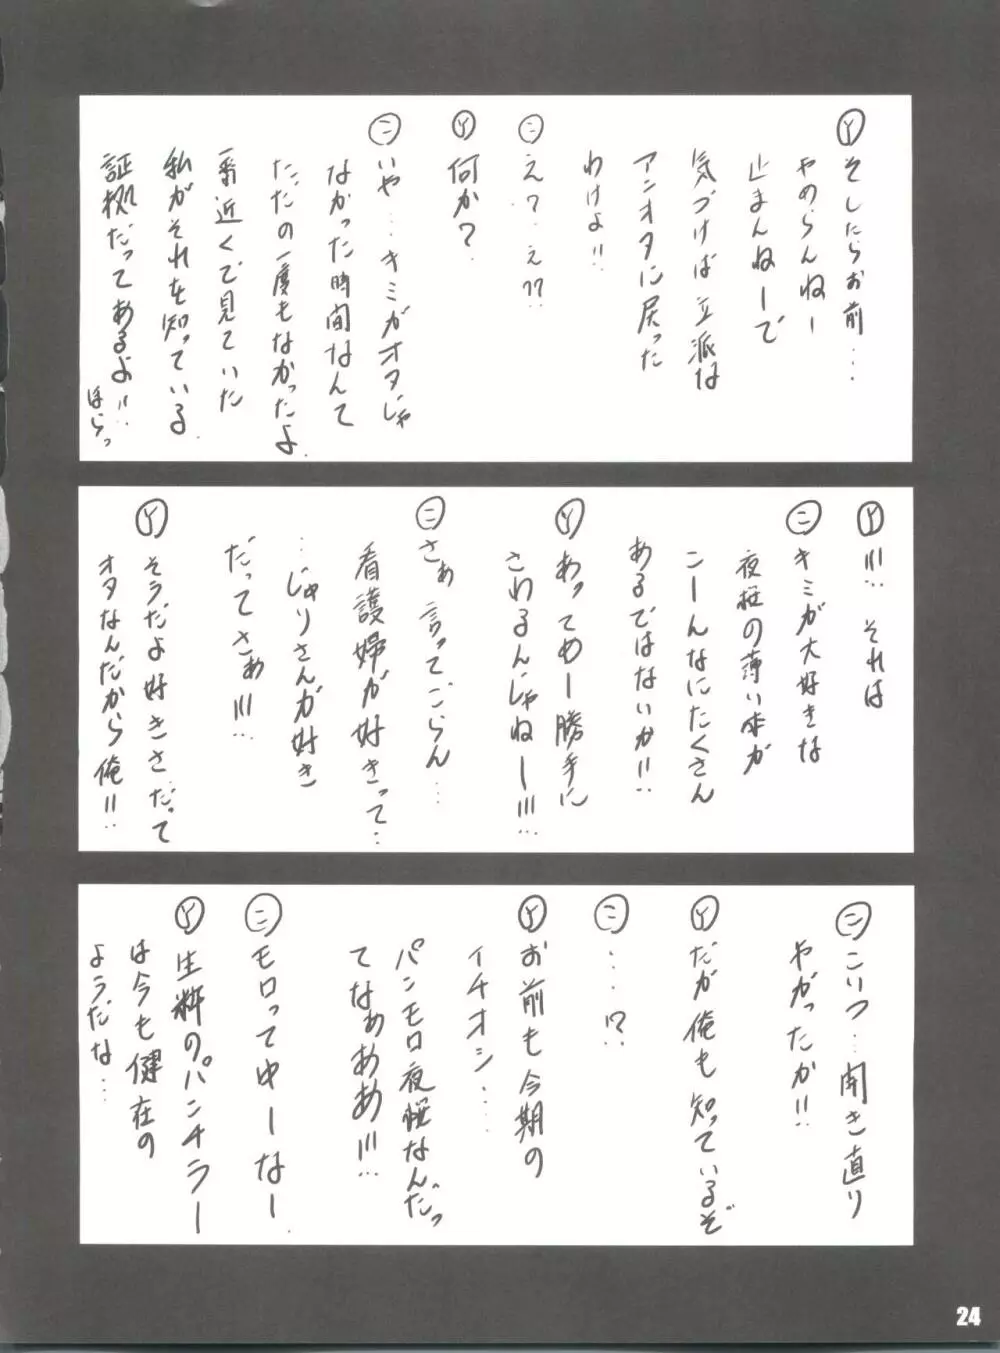 Ⓨそしたらお前…
やめらんねー
止まんねーで
気づけば立派な
アンオタに戻った
わけよ!!
㊁え?…え??
Ⓨ何か?
㊁いや…キミがオタじゃ
なかった時間なんて
ただの一度もなかったよ
一番近くで見ていた
私がそれを知っている.
証拠だってあるよ!!…
ほらっ
Ⓨ!!!… それは
㊁キミが大好きな
夜桜の薄い本が
こーんなにたくさん
あるではないか!!…
Ⓨあってめー勝手に
さわるんじゃねー!!!…
㊁さぁ言ってごらん…
看護婦が好きって…
…じゅりさんが好き
だってさぁ!!!…
Ⓨそうだよ好きさだって
オタなんだから俺!!…
㊁こいつ…開き直り
やがったか!!
Ⓨだが俺も知っているぞ
㊁…!?
Ⓨお前も今期の
イチオシ…
パンモロ夜桜なんだっ
てなぁああ!!!…
㊁モロってゆーなー
Ⓨ生粋のパンチラー
は今も健在の
ようだな…
24